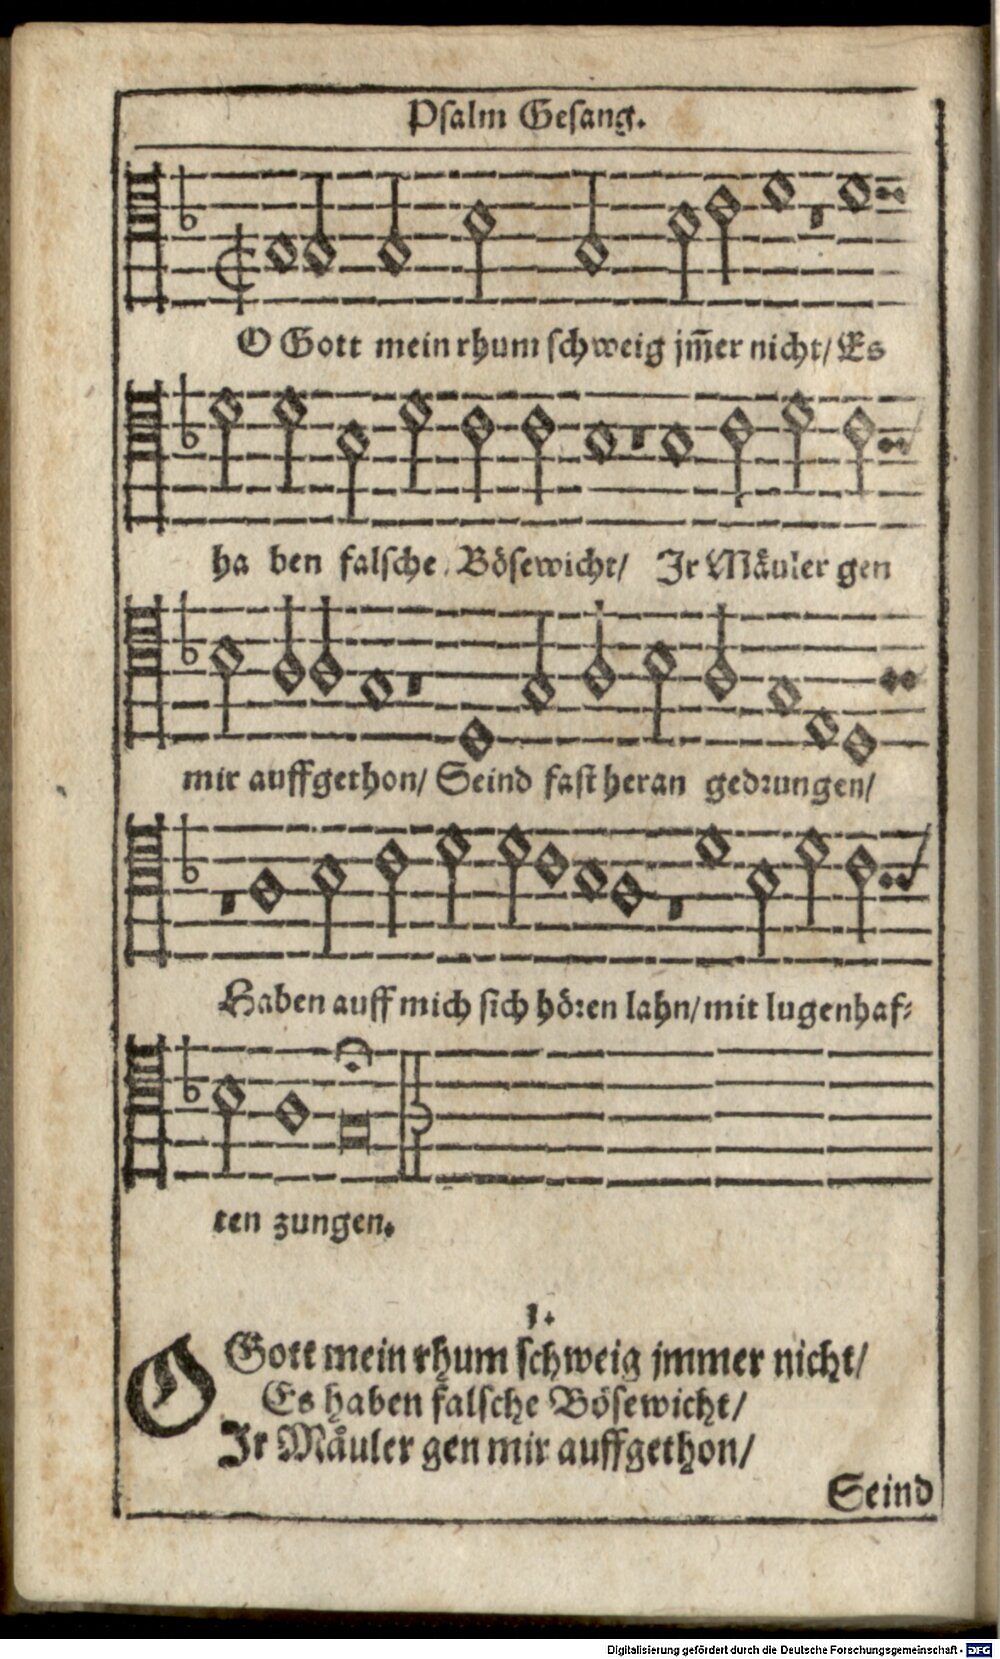 Psalm Gesang.
O Gott mein rhum schweig jm̄er nicht/ Es
ha ben falsche Bösewicht/ Jr Mäuler gen
mir auffgethon/ Seind fast heran gedrungen/
Haben auff mich sich hören lahn/ mit lugenhaf-
ten zungen.
1.
O Gott mein rhum schweig jmmer nicht/
Es haben falsche Bösewicht/
Jr Mäuler gen mir auffgethon/
Seind
Digitalisierung gefördert durch die Deutsche Forschungsgemeinschaft - DFG